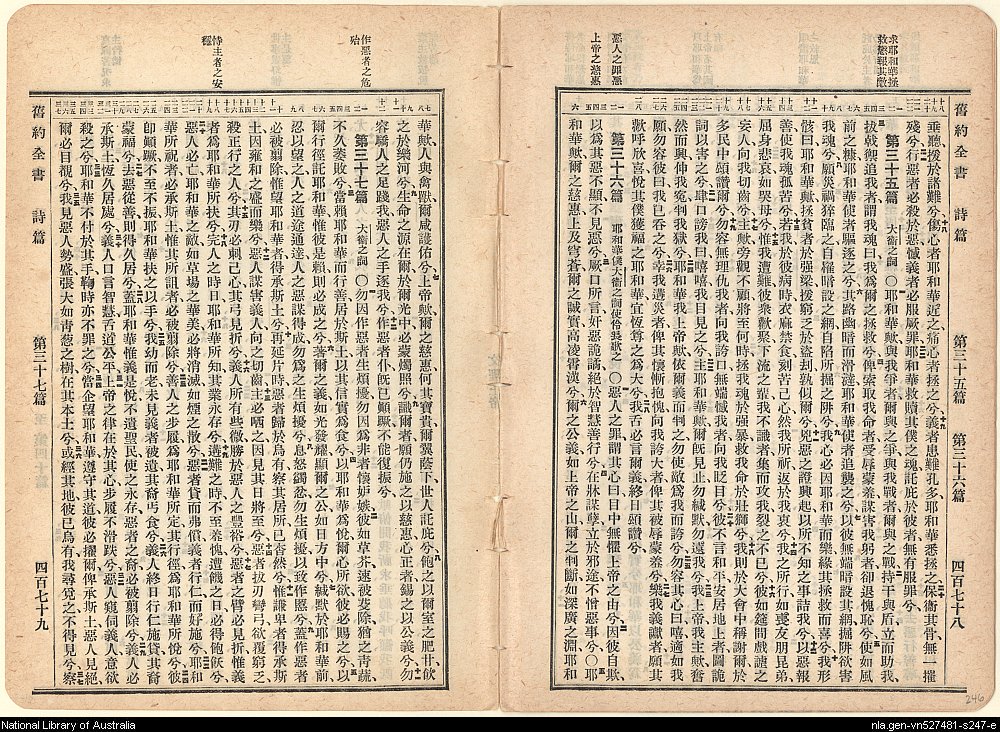 舊約全書　詩篇　第三十五篇　第三十六篇　四百七十八
求耶和華拯
救懲報其敵
惡人之罪愆
上帝之慈惠
垂聽援於諸難兮傷心者耶和華近之痛心者拯之兮義者患難孔多耶和華悉拯之兮保衞其骨無一摧
殘兮行惡者必殺於惡憾義者必服厥罪耶和華救贖其僕之魂託庇於彼者無有服罪兮
第三十五篇　大衞之詞　〇耶和華歟與我爭者爾與之爭與我戰者爾與之戰持干與盾立而助我
拔戟禦追我者謂我魂曰我爲爾之拯救兮俾索取我命者受辱蒙羞謀害我躬者卻退愧恥兮使如風
前之糠耶和華使者驅逐之兮其路幽暗而滑達耶和華使者追襲之兮以彼無端暗設其網掘阱欲害
我魂兮願災禍猝臨之自罹暗設之網自陷所掘之阱兮我心必因耶和華而樂緣其拯救而喜兮我形
骸曰耶和華歟拯貧者於强梁援窮乏於盜刦孰似爾兮兇惡之證興起以所不知之事詰我兮以惡報
善兮使我魂孤苦兮若我於彼病時衣麻禁食刻苦己心然我所祈返於我衷兮我之所行如喪友朋昆弟
屈身悲哀如哭母兮惟我遭難彼衆歡聚下流之輩我不識者集而攻我裂之不已兮彼如筵間戲謔之
妄人向我切齒兮主歟旁觀不顧將至何時拯我魂於强暴救我命於壯獅兮我則於大會中稱謝爾於
多民中頌讚爾兮勿容無理仇我者向我誇口無端憾我者向我眨目兮彼不言和平安居地上者圖詭
詞以害之兮肆口謗我曰嘻嘻我目見之兮主耶和華歟爾旣見止勿緘默勿遠我兮我上帝我主歟奮
然而興伸我寃判我獄兮耶和華我上帝歟依爾義而判之勿使敵爲我而誇兮勿容其心曰嘻適如我
願勿容彼曰我已吞之兮幸我遘災者俾其懷慚抱愧向我誇大者俾其被辱蒙羞兮樂我義讞者願其
歡呼欣喜悅其僕獲福之耶和華宜恆尊之爲大兮我舌必言爾義終日頌讚兮
第三十六篇　耶和華僕大衞之詞使伶長歌之　〇惡人之罪謂其心曰目中無懼上帝之由兮因彼自欺
以爲其惡不顯不見惡兮厥口所言奸惡詭譎絕於智慧善行兮在牀謀孽立於邪途不憎惡事兮〇耶
和華歟爾之慈惠上及穹蒼爾之誠實高凌霄漢兮爾之公義如上帝之山爾之判斷如深廣之淵耶和
作惡者之危
殆
恃主者之安
穩
華歟人與禽獸爾咸護佑兮上帝歟爾之慈惠何其寶貴爾翼蔭下世人託庇兮飽之以爾室之肥甘飲
之於樂河兮生命之源在爾於爾光中必蒙燭照兮識爾者願仍施之以慈惠心正者錫之以公義兮勿
容驕人之足踐我惡人之手逐我兮作惡者仆旣已顚蹶不能復振兮
第三十七篇　大衞之詞　〇勿因作惡者生煩擾勿因爲非者懷妬嫉彼如草芥速被芟除猶之靑蔬
不久萎敗兮當賴耶和華而行善居於斯土以其信實爲食兮以耶和華爲悅爾心所欲彼必賜之兮以
爾行徑託耶和華惟彼是賴則必成之兮著爾之義如光發耀顯爾之公如日方中兮緘默於耶和華前
忍以望之人之道途通達人之惡謀得成爾勿爲之生煩擾兮息怒蠲忿勿生煩擾以致作慝兮蓋作惡者
必被翦除惟望耶和華者得承斯土兮再延片時惡者歸於烏有察其居所已杳然兮惟謙卑者得承斯
土因雍和之盛而樂兮惡人謀害義人向之切齒主必哂之因見其日將至兮惡者拔刃彎弓欲覆窮乏
殺正行之人兮其刃必刺己心其弓見折兮義人所有些微勝於惡人之豐裕兮惡者之臂必見折惟義
者爲耶和華所扶兮完人之時日耶和華所知其業永存兮遘難之時不至羞愧遭饑之日必得飽飫兮
惡人必亡耶和華之敵如草場之華美必將消滅如煙之散兮惡者貸而弗償義者行仁而好施兮耶和
華所祝者必承斯土惟其所詛者必被翦除兮善人之步履爲耶和華所定其行徑爲耶和華所悅兮彼
卽顚蹶不至不振耶和華扶之以手兮我幼而老未見義者被遺其裔丐食兮義人終日行仁施貸其裔
蒙福兮去惡從善則得久居兮蓋耶和華惟義是悅不遺聖民使之永存惡者之裔必被翦除兮義人必
承斯土恆久居處兮義人口言智慧舌道公平上帝之律在於其心步履不滑跌兮惡人窺伺義人意欲
殺之兮耶和華不付於其手鞫時亦不罪之兮當企望耶和華遵守其道彼必擢爾俾承斯土惡人見絕
爾必目覩兮我見惡人勢盛張大如靑葱之樹在其本土兮或經其地彼已烏有我尋覓之不得見兮察
舊約全書　詩篇　第三十七篇　四百七十九
246
National Library of Australia
nla.gen-vn527481-s247-e